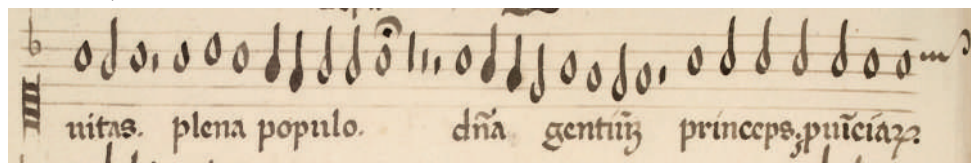 uitas. plena populo. dn̄a gentiū princeps ꝓuīciaꝝ.